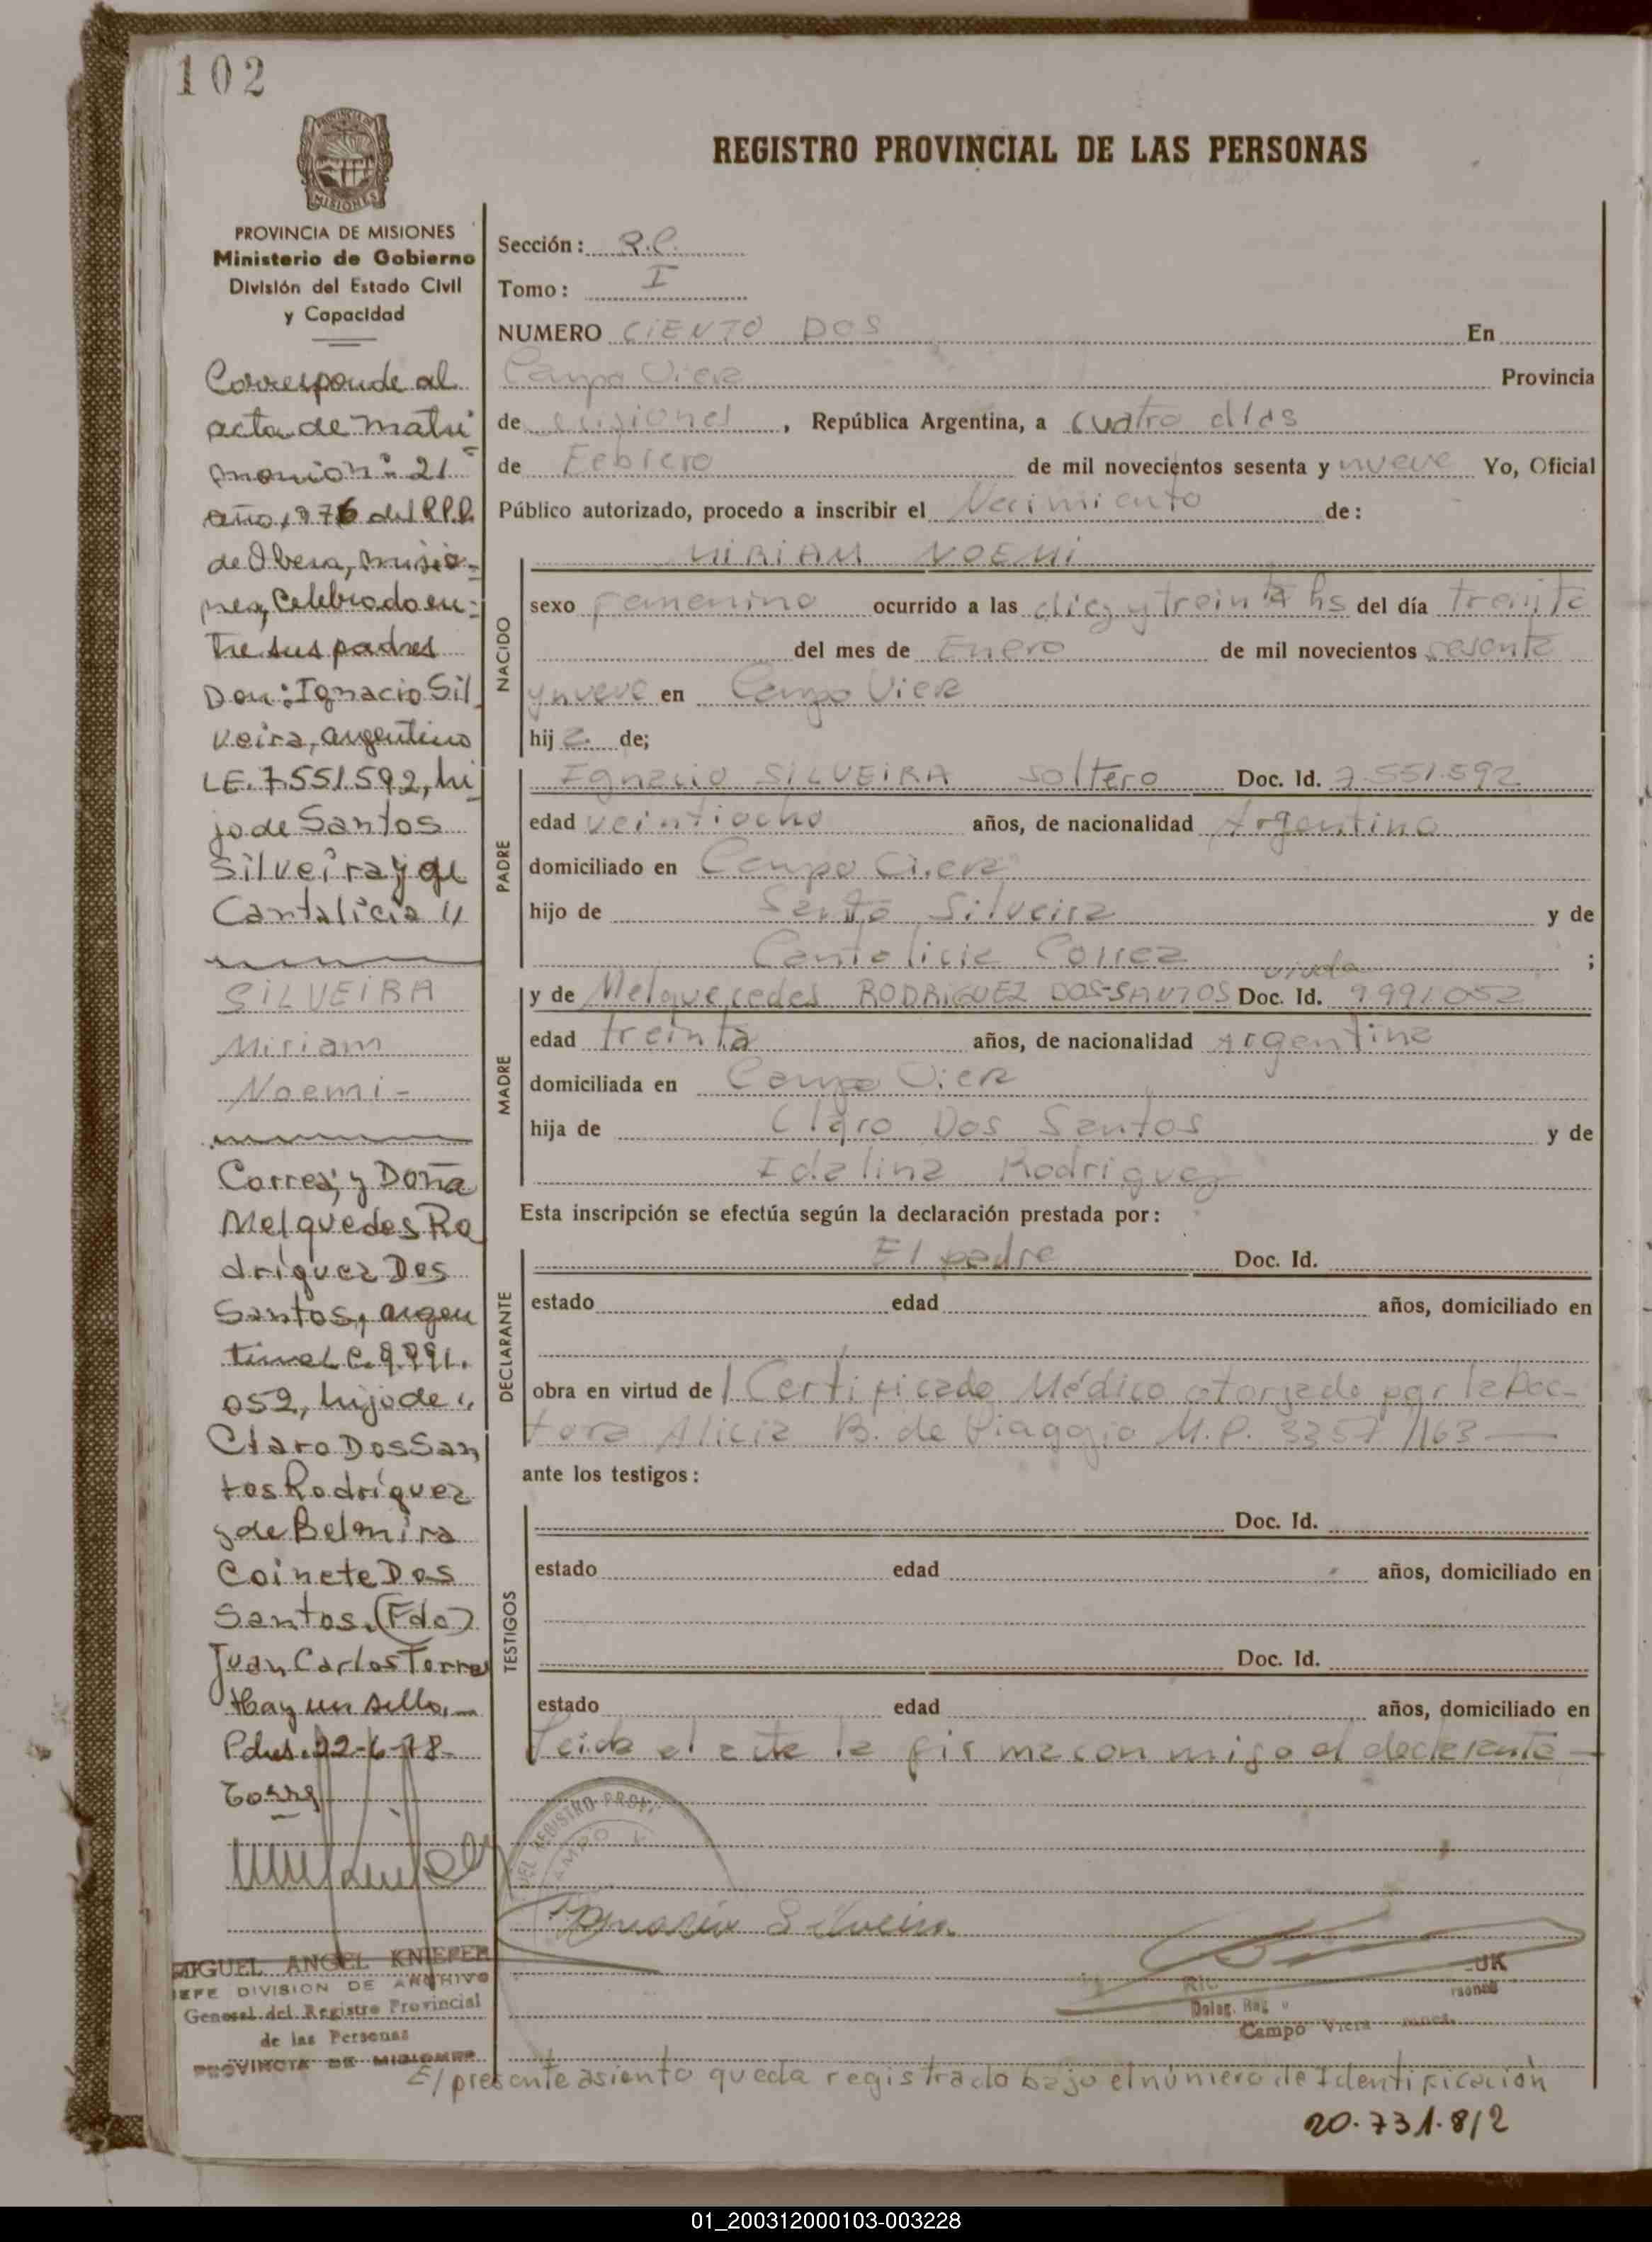 102
PROVINCIA DE MISIONES
REGISTRO PROVINCIAL DE LAS PERSONAS
PROVINCIA DE MISIONES
Ministerio de Gobierno
División del Estado Civil
y Capacidad
Corresponde al
acta de matri
monio nº 21
año 1976 del R.P.P.
de Obera, Misio-
nes, Celebrado en-
tre sus padres
Don: Ignacio Sil
veira, argentino
LE. 7.551.592, hi
jo de Santos
Silveira y de
Cantalicia
SILVEIRA
Miriam
Noemi-
Correa; y Doña
Melquedes Ro
dríguez Dos
Santos, argen
tina L.C. 9.991.
052, hija de
Claro Dos San
tos Rodríguez
y de Belmira
Coinete Dos
Santos. (Fdo)
Juan Carlos Torres
Hay un sello.
Pdas. 22-6-78-
MIGUEL ANGEL KNIEPER
JEFE DIVISION DE ARCHIVO
General del Registro Provincial
de las Personas
PROVINCIA DE MISIONES
Sección: R.P.
Tomo: I
NUMERO CIENTO DOS En
Campo Viera Provincia
de Misiones, República Argentina, a cuatro días
de Febrero de mil novecientos sesenta y nueve Yo, Oficial
Público autorizado, procedo a inscribir el Nacimiento de:
NACIDO
MIRIAM NOEMI
sexo femenino ocurrido a las diez y treinta hs del día treinta
del mes de Enero de mil novecientos sesenta
y nueve en Campo Viera
hija de;
PADRE
Ignacio SILVEIRA soltero Doc. Id. 7.551.592
edad veintiocho años, de nacionalidad Argentino
domiciliado en Campo Viera
hijo de Santo Silveira y de
Cantalicia Correa ;
MADRE
viuda
y de Melquecedes RODRIGUEZ DOS-SANTOS Doc. Id. 9.991.052
edad treinta años, de nacionalidad argentina
domiciliada en Campo Viera
hija de Claro Dos Santos y de
Idalina Rodriguez
Esta inscripción se efectúa según la declaración prestada por:
DECLARANTE
El padre Doc. Id.
estado edad años, domiciliado en
obra en virtud de 1 Certificado Médico otorgado por la Doc-
tora Alicia B. de Piaggio M.P. 3357/163
ante los testigos:
TESTIGOS
Doc. Id.
estado edad años, domiciliado en
Doc. Id.
estado edad años, domiciliado en
Leida el acta la firma con migo el declarante
DEL REGISTRO PROVI
Ignacio Silveira
Deleg. Reg
Campo Viera
El presente asiento queda registrado bajo el número de Identificación
20.731.812
01_200312000103-003228